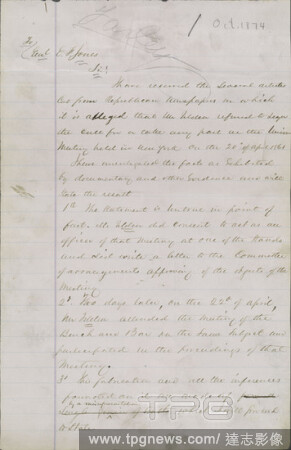 Copy
1
Oct. 1874
To
E. P. Jones
Sir;
I have received the several articles
cut from Republican Newspapers in which
it is alleged that Mr Tilden refused to sign
the call for or take any part in the Union
Meeting held in New York on the 20th of April 1861
I have investigated the facts as exhibited
by documentary and other evidence and will
state the result
1st The statement is untrue in point of
fact. Mr Tilden did consent to act as an
officer of that meeting at one of the stands
and did write a letter to the Committee
of arrangements approving of the objects of the
Meeting.
2d Two days later, on the 22d of April,
Mr Tilden attended the meeting of the
Bench and Bar on the same subject and
participated in the proceedings of that
Meeting.
3d and all the inferences
founded on
TPG
www.tpgnews.com/ 達志影像